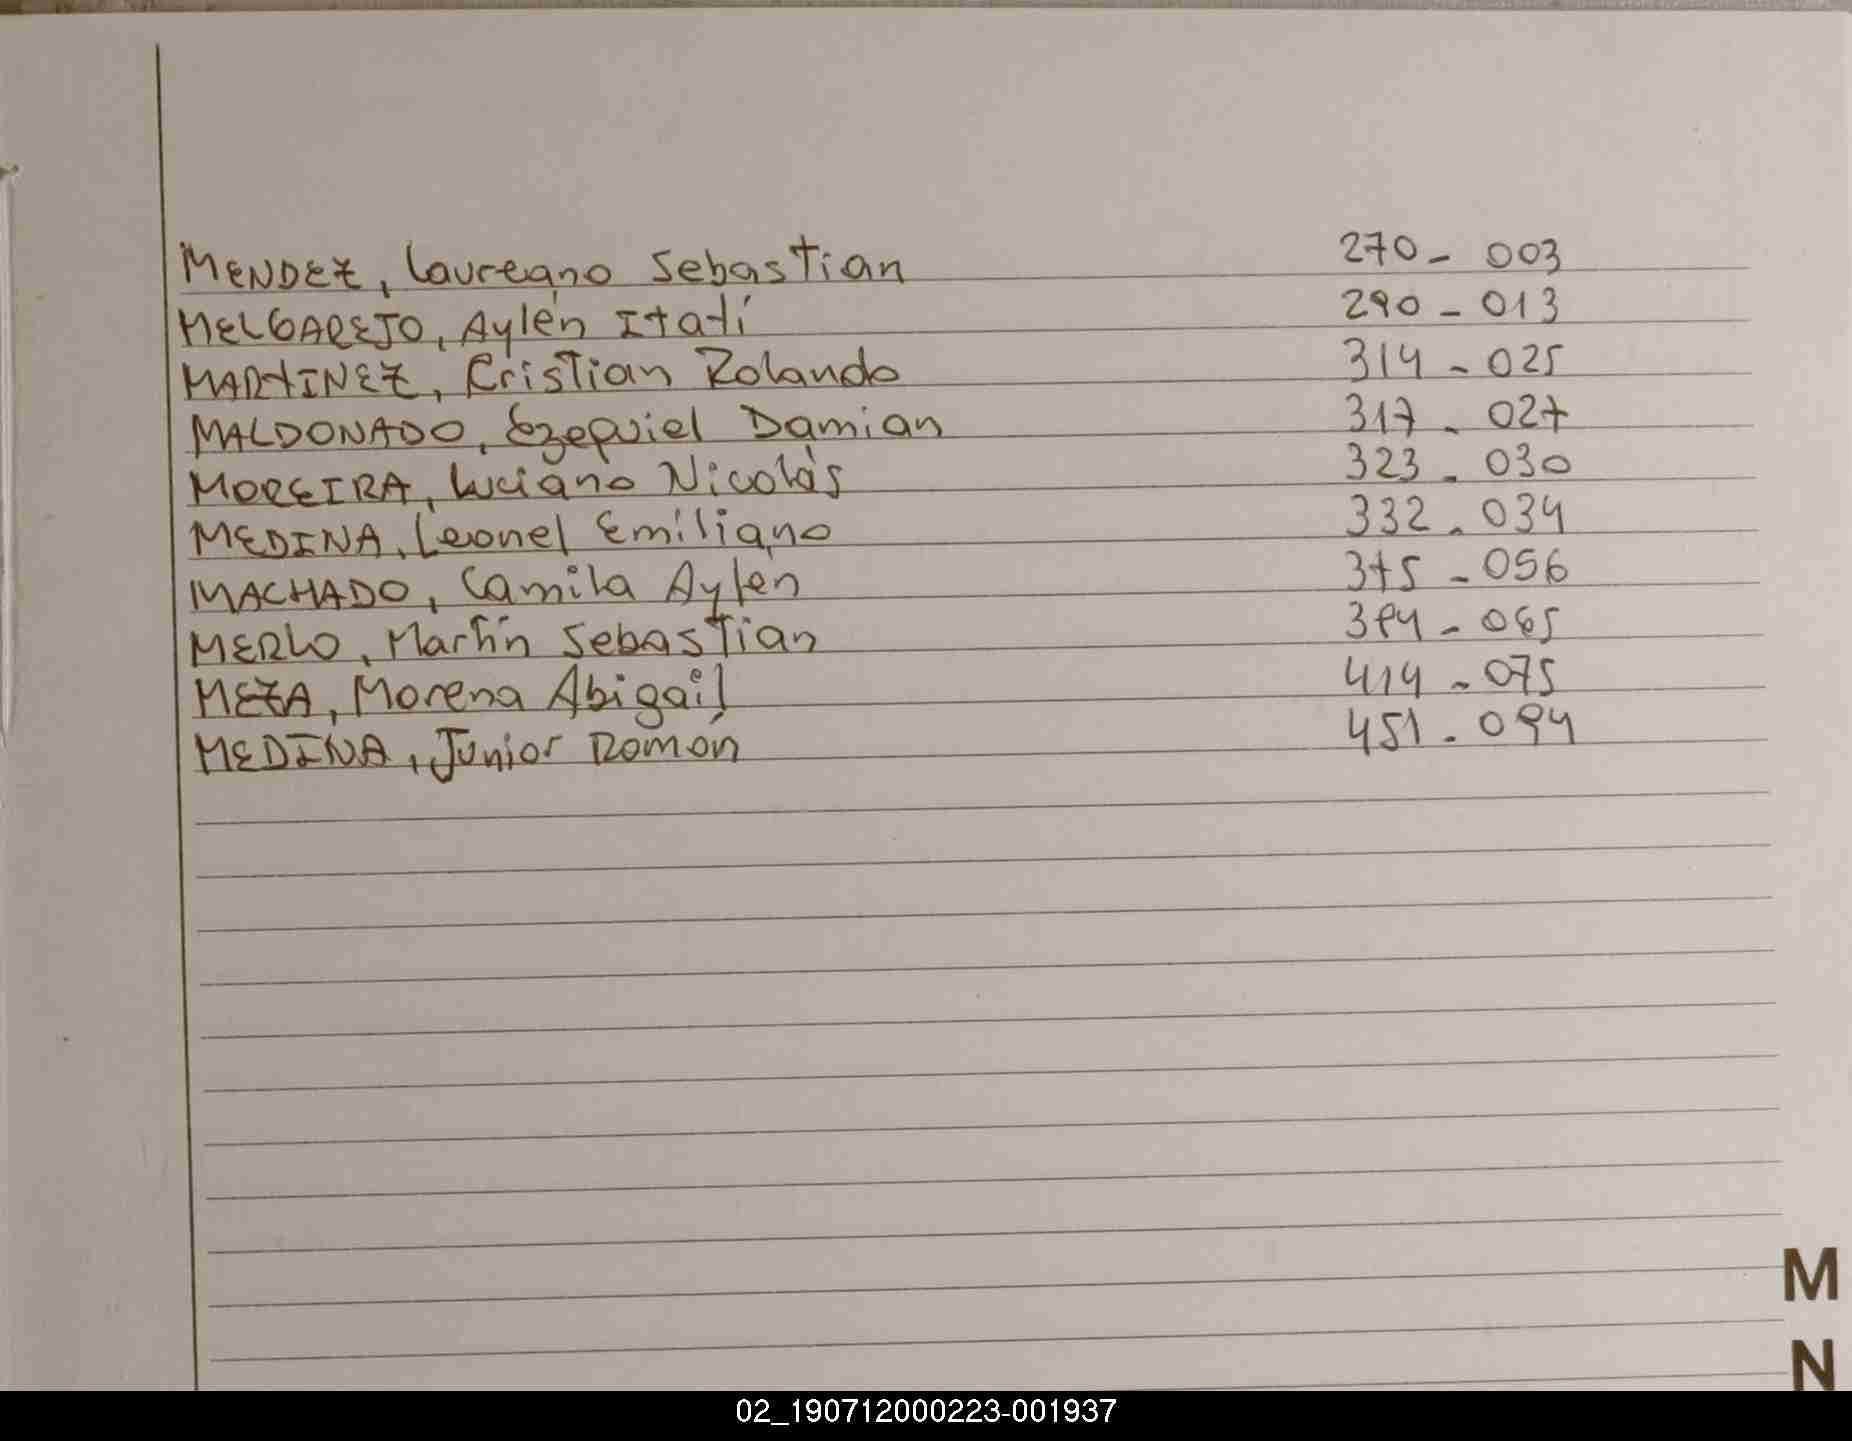 MENDEZ, Laureano Sebastian 270 - 003
MELGAREJO, Aylén Itatí 290 - 013
MARTINEZ, Cristian Rolando 314 - 025
MALDONADO, Ezequiel Damian 317 - 027
MOREIRA, Luciano Nicolás 323 - 030
MEDINA, Leonel Emiliano 332 - 034
MACHADO, Camila Aylen 375 - 056
MERLO, Martín Sebastian 394 - 065
MEZA, Morena Abigail 414 - 075
MEDINA, Junior Ramón 451 - 094
M
N
02_190712000223-001937